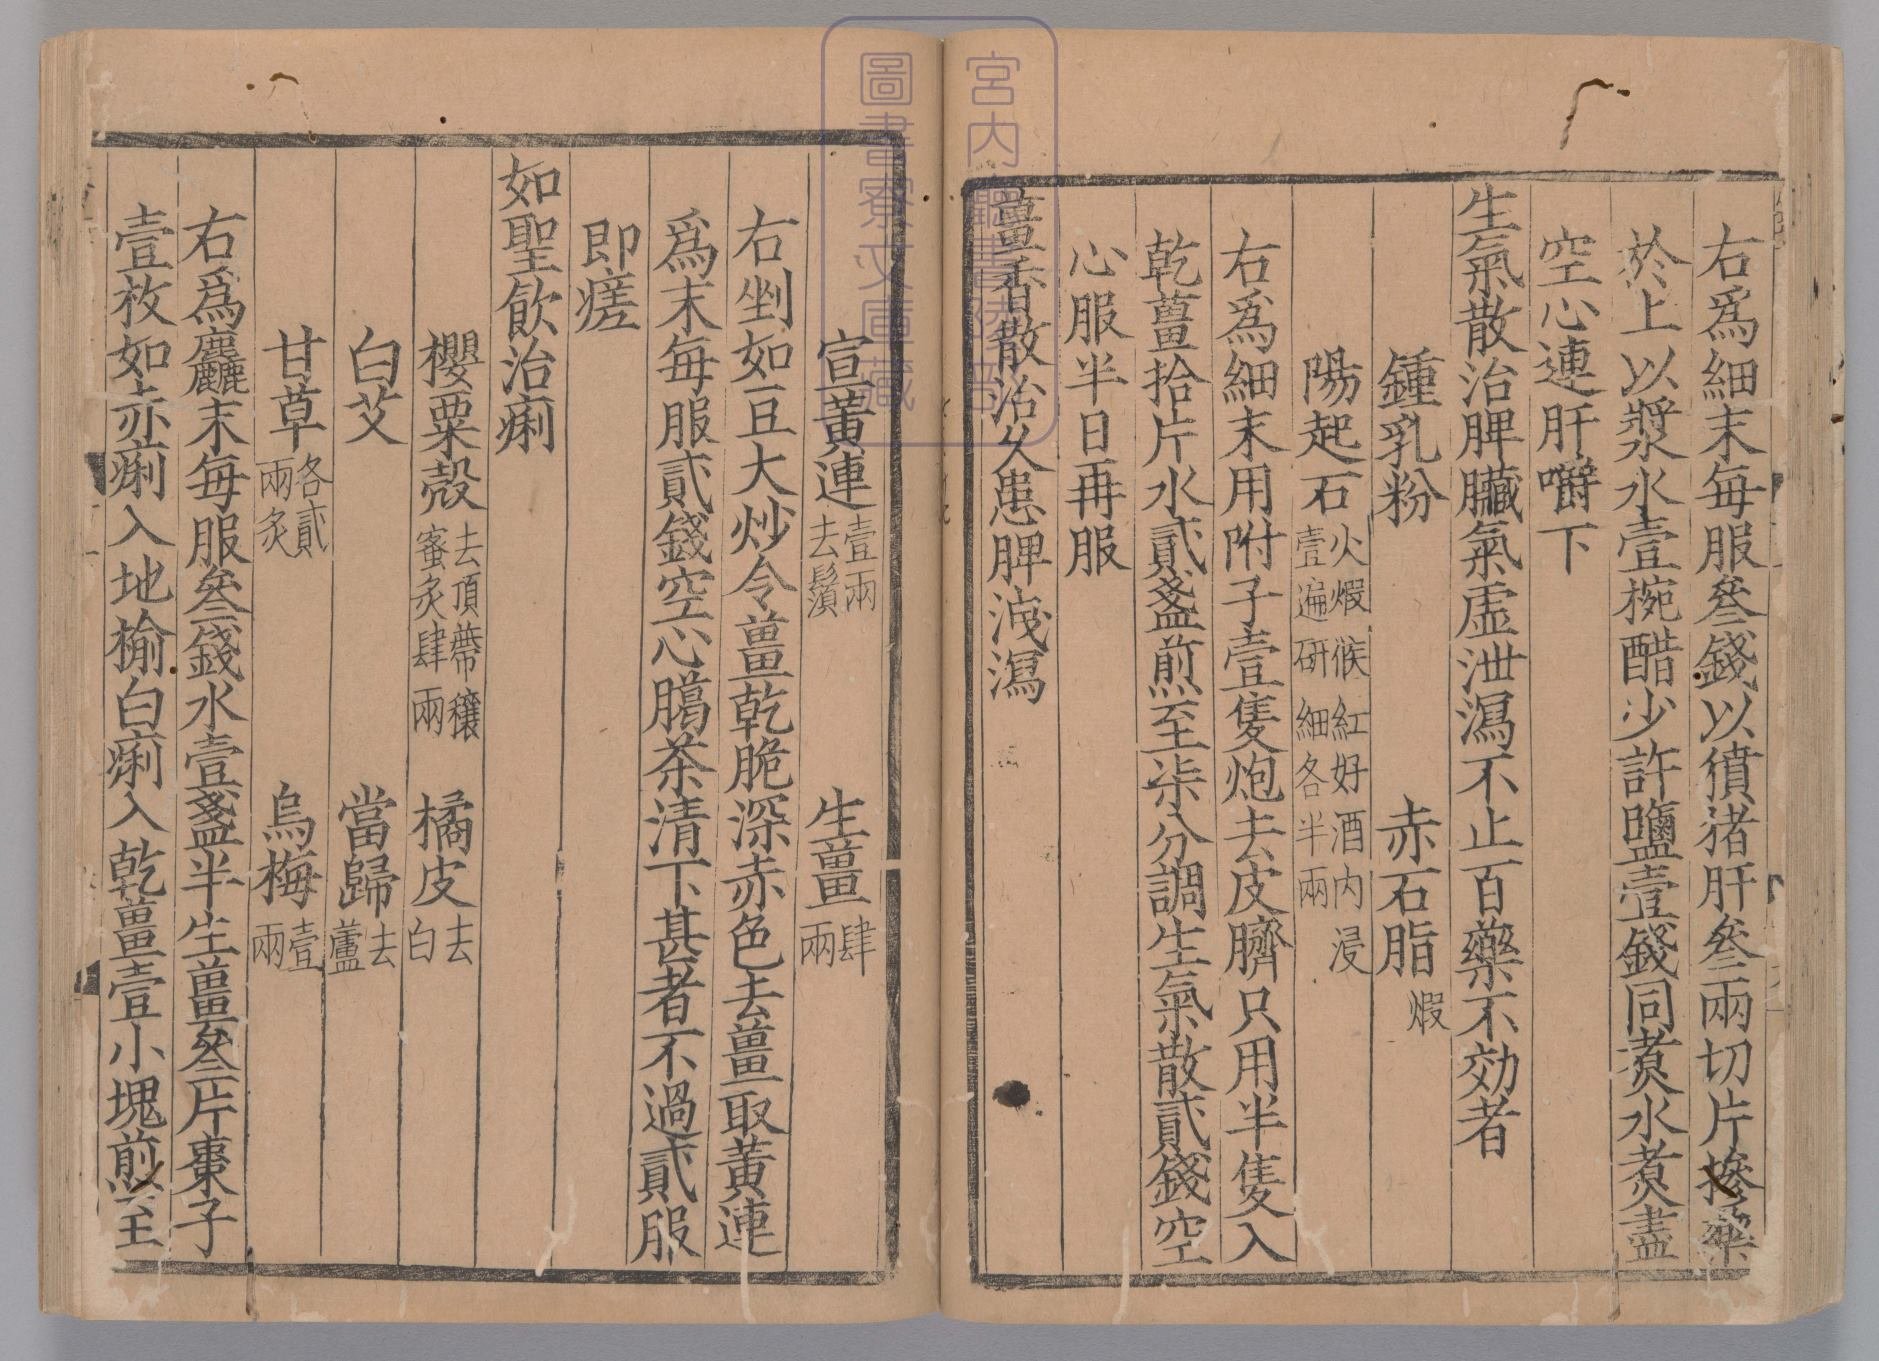 右爲細末每服叄錢以獖猪肝叄兩切片摻藥
於上以漿水壹椀醋少許鹽壹錢同煑水煑盡
空心連肝嚼下
生氣散治脾臟氣虛泄瀉不止百藥不効者
鍾乳粉 赤石脂煆
陽起石火煆候紅好酒内浸壹遍研細各半兩
右爲細末用附子壹隻炮去皮臍只用半隻入
乾薑拾片水貳盞煎至柒分調生氣散貳錢空
心服半日再服
薑香散治久患脾泄瀉
宣黃連壹兩去鬚 生薑肆兩
右剉如豆大炒令薑乾脆深赤色去薑取黃連
爲末每服貳錢空心臈茶清下甚者不過貳服
即瘥
如聖飲治痢
櫻粟殻去頂蔕穰蜜炙肆兩 橘皮去白
白艾 當歸去蘆
甘草各貳兩炙 烏梅壹兩
右爲麤末每服叄錢水壹盞半生薑叄片棗子
壹枚如赤痢入地榆白痢入乾薑壹小塊煎至
宮内廳書陵部
圖書寮文庫藏